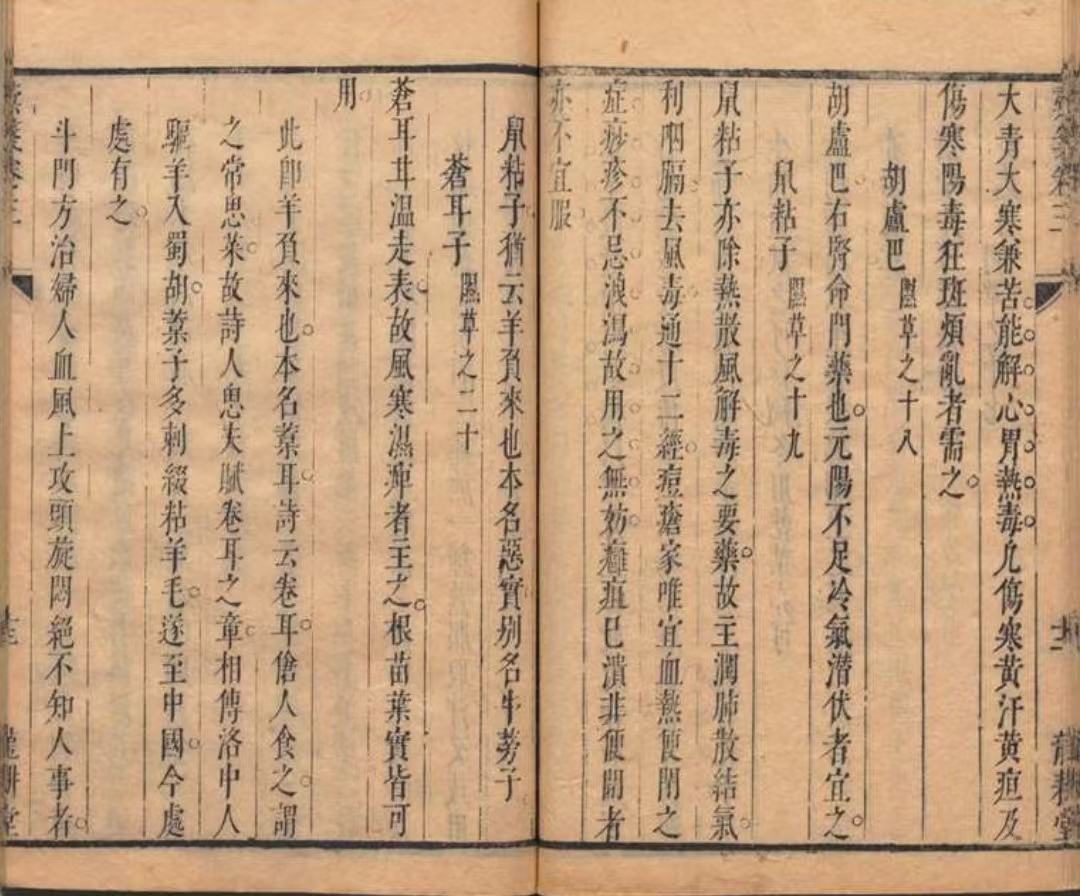 大青大寒兼苦能解心胃熱毒凢傷寒黃汗黃疸及
傷寒陽毒狂斑煩亂者需之
胡盧巴 隰草之十八
胡盧巴右腎命門藥也元陽不足冷氣潛伏者宜之
鼠粘子 隰草之十九
鼠粘子亦除熱散風解毒之要藥故主潤肺散結氣
利咽膈去風毒通十二經痘瘡家唯宜血熱便閉之
症痧疹不忌洩瀉故用之無妨癰疽已潰非便閉者
亦不宜服
鼠粘子猶云羊負來也本名惡實別名牛蒡子
蒼耳子 隰草之二十
蒼耳耳温走表故風寒濕痺者主之根苗葉實皆可
用
此卽羊負來也本名葈耳詩云卷耳傖人食之謂
之常思菜故詩人思夫賦卷耳之章相傳洛中人
驅羊入蜀胡葈子多刺綴粘羊毛遂至中國今處
處有之
斗門方治婦人血風上攻頭旋悶絕不知人事者